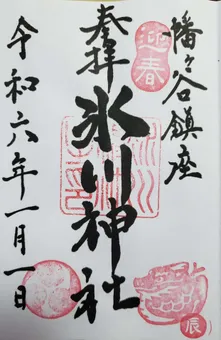 幡ヶ谷鎮座
迎春
奉拝
氷川神社
令和六年一月一日
辰